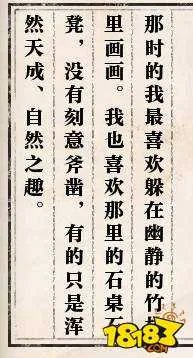 那时的我最喜欢躲在幽静的竹
里画画。我也喜欢那里的石桌石
凳，没有刻意斧凿，有的只是浑
然天成、自然之趣。
18183